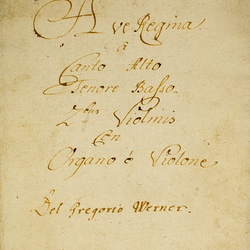 Ave Regina
à
Canto Alto
Tenore Basso.
2bus Violinis
Con
Organo ô Violone
Del Gregorio Werner.